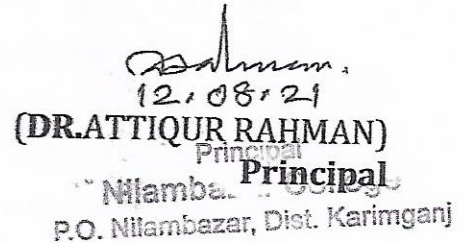 12.08.21
(DR.ATTIQUR RAHMAN)
Principal
Principal
Nilambazar College
P.O. Nilambazar, Dist. Karimganj